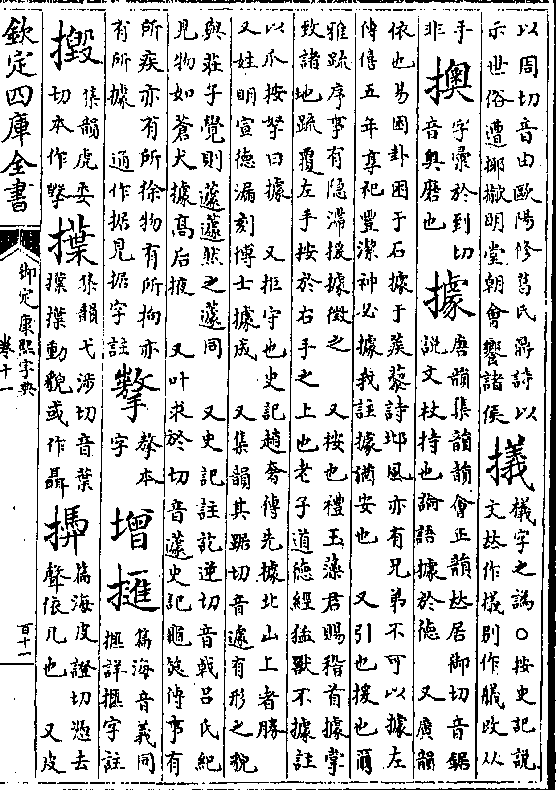 以周切音由歐陽修葛氏鼎詩以
示世俗遭揶撳明堂朝會饗諸侯
檥字之譌○按史記説
文𠀤作檥别作艤改从
手
非
擙
字彙於到切
音奥磨也
據
唐韻集韻韻會正韻𠀤居御切音鋸
説文杖持也論語據於德　又廣韻
依也易困卦困于石據于蒺藜詩邶風亦有兄弟不可以據左
傳僖五年享祀豐潔神必據我註據猶安也　又引也援也爾
雅疏序事有隱滯援據徵之　又按也禮玉藻君賜稽首據掌
致諸地疏覆左手按於右手之上也老子道德經猛獸不據註
以爪按拏曰據　又拒守也史記趙奢傳先據北山上者勝
又姓明宣德漏刻博士據成　又集韻其踞切音遽有形之貌
與莊子覺則蘧蘧然之蘧同　又史記註訖逆切音戟吕氏紀
見物如蒼犬據高后掖　又叶求於切音蘧史記龜筴傳事有
所疾亦有所徐物有所拘亦
有所據　通作据見据字註
本
字
增
篇海音義同
詳字註
集韻虎委
切本作
擛
集韻弋涉切音葉
擛擛動貌或作聶
篇海皮證切憑去
聲依几也　又皮
欽定四庫全書
御定康熙字典
卷十一
百十一